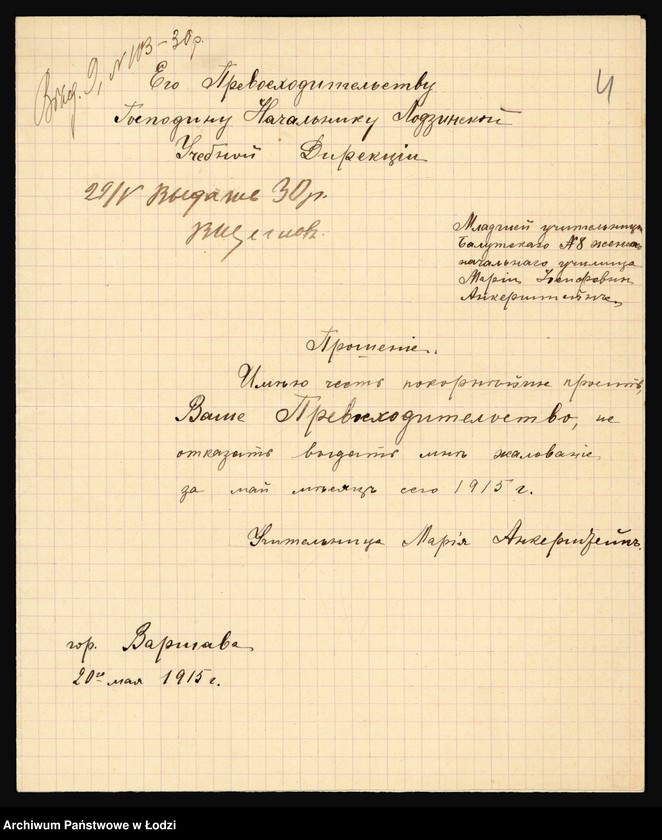 Выд. 9, № 103 – 30 р.
4
Его Превосходительству
Господину Начальнику Лодзинской
Учебной Дирекціи
29/V Выдать 30 р.
Младшей учительницы
Балутскаго № 8 женск.
начальнаго училища
Маріи
Анкерштейнъ
Прошеніе.
Имѣю честь покорнѣйше просить
Ваше Превосходительство, не
отказать выдать мнѣ жалованіе
за май мѣсяцъ сего 1915 г.
Учительница Марія Анкерштейнъ.
гор. Варшава
20го мая 1915 г.
Archiwum Państwowe w Łodzi